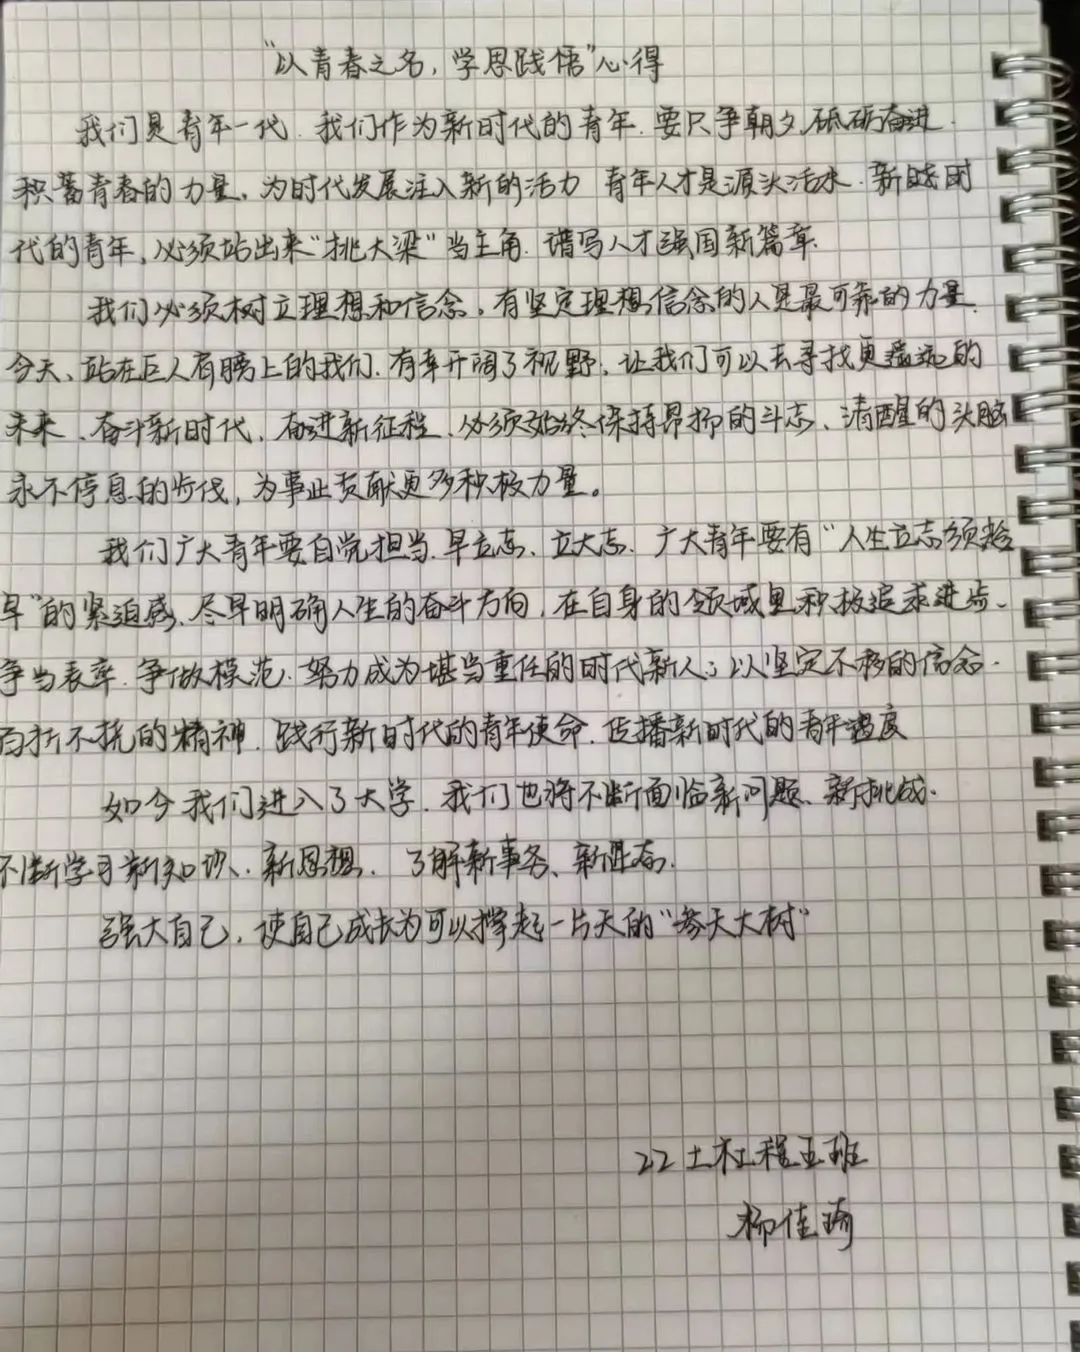 “以青春之名，学思践悟”心得
我们是青年一代.我们作为新时代的青年.要只争朝夕,砥砺奋进.
积蓄青春的力量,为时代发展注入新的活力 青年人才是源头活水.新时
代的青年,必须站出来“挑大梁”当主角.谱写人才强国新篇章.
我们必须树立理想和信念。有坚定理想信念的人是最可靠的力量.
今天、站在巨人肩膀上的我们.有幸开阔了视野,让我们可以去寻找更遥远的
未来.奋斗新时代,奋进新征程,必须始终保持昂扬的斗志、清醒的头脑
永不停息的步伐,为事业贡献更多积极力量。
我们广大青年要自觉担当.早立志、立大志.广大青年要有“人生立志须趁
早”的紧迫感.尽早明确人生的奋斗方向,在自身的领域里积极追求进步、
争当表率.争做模范.努力成为堪当重任的时代新人;以坚定不移的信念.
百折不挠的精神.践行新时代的青年使命.传播新时代的青年温度
如今我们进入了大学.我们也将不断面临新问题、新挑战.
不断学习新知识、新思想.了解新事务、新混态.
强大自己,使自己成长为可以撑起一片天的“参天大树”
22土木工程五班
柳佳琦